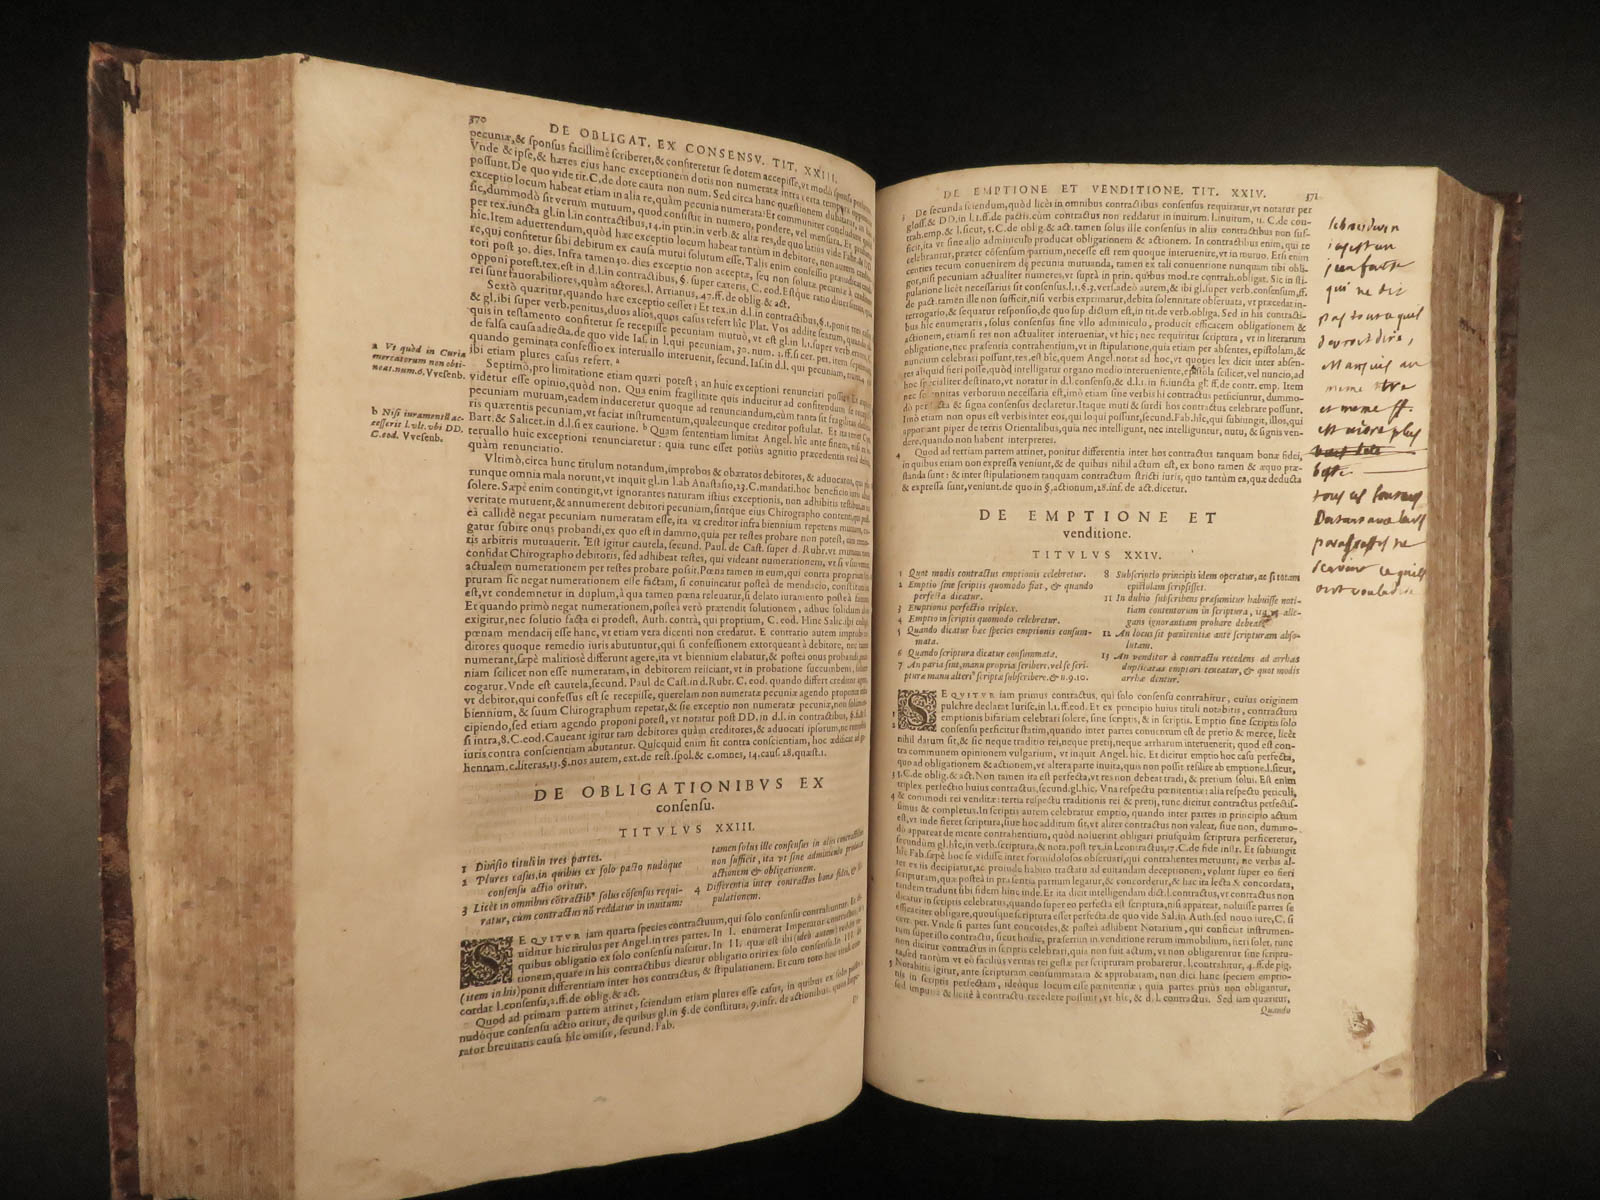 370
DE OBLIGAT. EX CONSENSV. TIT. XXIII.
pecuniæ, & sponsus facillimè scriberet, & confiteretur se dotem accepisse, vt modò
Vnde & ipse, & hæres eius hanc exceptionem dotis non numeratæ intra certa tempora
possunt. De quo vide tit. C. de dote cauta non num. Sed circa hanc quæstionem dubitatur,
exceptio locum habeat etiam in alia re, quàm pecunia numerata: Et communiter concluditur
sic, dummodò sit verum mutuum, quod consistit in numero, pondere, vel mensura. Et
per tex. iuncta gl. in l. in contractibus, 14. in prin. in verb. & alia res, de quo latiùs vide Fabr.
hîc. Item aduertendum, quòd hæc exceptio locum habeat tantùm in debitore, non autem
re, qui confitetur sibi debitum ex causa mutui solutum esse. Talis enim confessio præiudicat
tori post 30. dies. Infra tamen 30. dies exceptio non acceptæ, seu non solutæ pecuniæ à creditore
opponi potest. tex. est in d. l. in contractibus, §. super cæteris, C. eod. Estque ratio diuersitatis, quia
rei sunt fauorabiliores, quàm actores. l. Arrianus, 47. ff. de oblig. & act.
Sextò quæritur, quando hæc exceptio cesset? Et tex. in d. l. in contractibus, §. 1. ponit tres casus,
& gl. ibi super verb. penitus, duos alios, quos casus refert hîc Plat. Vos addite
quis in testamento confitetur se recepisse pecuniam mutuò, vt est gl. in l. 1. super verb.
de falsa causa adiecta. de quo vide Ias. in l. qui pecuniam, 30. num. 1. ff. si cer. pet. item
quando geminata confessio ex interuallo interuenit, secund. Ias. in d. l. qui pecuniam,
ibi etiam plures casus refert. a
Septimò, pro limitatione etiam quæri potest; an huic exceptioni renunciari possit?
videtur esse opinio, quòd non. Qua enim fragilitate quis inducitur ad confitendum se recepisse
pecuniam mutuam, eadem induceretur quoque ad renunciandum, cùm tanta sit fragilitas
ris quærentis pecuniam, vt faciat instrumentum, qualecunque creditor postulat. Et ita tenet Cyn.
Bart. & Salicet. in d. l. si ex cautione. b Quam sententiam limitat Angel. hîc ante finem, nisi ex
teruallo huic exceptioni renunciaretur: quia tunc esset potiùs agnitio præcedentis
quàm renunciatio.
Vltimò, circa hunc titulum notandum, improbos & obæratos debitores, & aduocatos,
runque omnia mala norunt, vt inquit gl. in l. ab Anastasio, 23. C. mandati. hoc beneficio iuris
solere. Sæpè enim contingit, vt ignorantes naturam istius exceptionis, non adhibitis testibus,
veritate mutuent, & annumerent debitori pecuniam, sintque eius Chirographo contenti,
eâ callidè negat pecuniam numeratam esse, ita vt creditor infra biennium repetens mutuum,
gatur subire onus probandi, ex quo est in damno, quia per testes probare non potest, cùm
tis arbitris mutuauerit. Est igitur cautela, secund. Paul. de Cast. super d. Rubr. vt mutuans
confidat Chirographo debitoris, sed adhibeat testes, qui videant numerationem, vt si
actualem numerationem per testes probare possit. Pœna tamen in eum, qui contra propriam
pturam sic negat numerationem esse factam, si conuincatur posteà de mendacio, constituta
est, vt condemnetur in duplum, à qua tamen pœna releuatur, si delato iuramento posteà
Et quando primò negat numerationem, posteà verò prætendit solutionem, adhuc solidum ab eo
exigitur, nec solutio facta ei prodest. Auth. contrà, qui proprium, C. eod. Hinc Salic. ibi
pœnam mendacij esse hanc, vt etiam vera dicenti non credatur. E contrario autem improbi
ditores quoque remedio iuris abutuntur, qui si confessionem extorqueant à debitore, nec
numerant, sæpè malitiosè differunt agere, ita vt biennium elabatur, & posteà onus probandi,
niam scilicet non esse numeratam, in debitorem reiiciant, vt in probatione succumbens,
cogatur. Vnde est cautela, secund. Paul. de Cast. in d. Rubr. C. eod. quando differt creditor
vt debitor, qui confessus est se recepisse, querelam non numeratæ pecuniæ agendo proponat intra
biennium, & suum Chirographum repetat, & sic exceptio non numeratæ pecuniæ, non solùm
cipiendo, sed etiam agendo proponi potest, vt notatur post DD. in d. l. in contractibus,
si intra, 8. C. eod. Caueant igitur tam debitores quàm creditores, & aduocati ipsorum, ne
iuris contra conscientiam abutantur. Quicquid enim fit contra conscientiam, hoc ædificat ad ge-
hennam. c. literas, 13. §. nos autem, ext. de rest. spol. & c. omnes, 14. caus. 28. quæst. 1.
a Vt quòd in Curia
mercatorum non obti-
neat. num. 6. Vvesenb.
b Nisi iuramentũ ac-
cesserit l. vlt. vbi DD.
C. eod. Vvesenb.
DE OBLIGATIONIBVS EX
consensu.
TITVLVS XXIII.
1 Diuisio tituli in tres partes.
2 Plures casus, in quibus ex solo pacto nudóque
consensu actio oritur.
3 Licèt in omnibus cōtractib. solus cōsensus requi-
ratur, cùm contractus nō reddatur in inuitum:
tamen solus ille consensus in aliis contractibus
non sufficit, ita vt sine adminiculo producat
actionem & obligationem.
4 Differentia inter contractus bonæ fidei, & sti-
pulationem.
SEQVITVR iam quarta species contractuum, qui solo consensu contrahuntur. Et
uiditur hîc titulus per Angel. in tres partes. In I. enumerat Imperator contractus, in
quibus obligatio ex solo consensu nascitur. In II. quæ est ibi (ideò autem) reddit
tionem, quare in his contractibus dicatur obligatio oriri ex solo consensu. In III. ibi
(item in his) ponit differentiam inter hos contractus, & stipulationem. Et cum toto hoc titulo con-
cordat l. consensu, 2. ff. de oblig. & act.
Quod ad primam partem attinet, sciendum etiam plures esse casus, in quibus ex solo pacto
nudóque consensu actio oritur, de quibus gl. in §. de constituta, 9. infr. de actionibus. quos Impe-
rator breuitatis causa hîc omisit, secund. Fab.
DE EMPTIONE ET VENDITIONE. TIT. XXIV.
371
3 De secunda sciendum, quòd licèt in omnibus contractibus consensus requiratur, vt notatur per
gloss. & DD. in l. 1. ff. de pactis. cùm contractus non reddatur in inuitum. l. inuitum, 11. C. de con-
trah. emp. & l. sicut, 5. C. de oblig. & act. tamen solus ille consensus in aliis contractibus non suf-
ficit, ita vt sine alio adminiculo producat obligationem & actionem. In contractibus enim, qui re
celebrantur, præter consensum partium, necesse est rem quoque interuenire, vt in mutuo. Etsi enim
centies tecum conuenirem de pecunia mutuanda, tamen ex tali conuentione nunquam tibi obli-
gor, nisi pecuniam actualiter numeres, vt suprà in prin. quibus mod. re contrah. obligat. Sic in sti-
pulatione licèt necessarius sit consensus. l. 1. §. 3. vers. adeò autem, & ibi gl. super verb. consensum, ff.
de pact. tamen ille non sufficit, nisi verbis exprimatur, debita solennitate obseruata, vt præcedat in-
terrogatio, & sequatur responsio, de quo sup. dictum est, in tit. de verb. obliga. Sed in his contracti-
bus hîc enumeratis, solus consensus sine vllo adminiculo, producit efficacem obligationem &
actionem, etiamsi res non actualiter interueniat, vt hîc, nec requiritur scriptura, vt in literarum
obligatione, nec præsentia contrahentium, vt in stipulatione, quia etiam per absentes, epistolam, &
nuncium celebrari possunt, tex. est hîc, quem Angel. notat ad hoc, vt quoties lex dicit inter absen-
tes aliquid fieri posse, quòd intelligatur organo medio interueniente, epistola scilicet, vel nuncio, ad
hoc specialiter destinato, vt notatur in d. l. consensu, & d. l. 1. in fi. iuncta gl. ff. de contr. emp. Item
nec solennitas verborum necessaria est, imò etiam sine verbis hi contractus perficiuntur, dummo-
dò per acta & signa consensus declaretur. Itaque muti & surdi hos contractus celebrare possunt.
Imò etiam non opus est verbis inter eos, qui loqui possunt, secund. Fab. hîc, qui subiungit, illos, qui
apportant piper de terris Orientalibus, quia nec intelligunt, nec intelliguntur, nutu, & signis ven-
dere, quando non habent interpretes.
4 Quod ad tertiam partem attinet, ponitur differentia inter hos contractus tanquam bonæ fidei,
in quibus etiam non expressa veniunt, & de quibus nihil actum est, ex bono tamen & æquo præ-
standa sunt: & inter stipulationem tanquam contractum stricti iuris, quo tantùm ea, quæ deducta
& expressa sunt, veniunt. de quo in §. actionum, 28. inf. de act. dicetur.
DE EMPTIONE ET
venditione.
TITVLVS XXIV.
1 Quot modis contractus emptionis celebretur.
2 Emptio sine scriptis quomodo fiat, & quando
perfecta dicatur.
3 Emptionis perfectio triplex.
4 Emptio in scriptis quomodo celebretur.
5 Quando dicatur hæc species emptionis consum-
mata.
6 Quando scriptura dicatur consummata.
7 An paria sint, manu propria scribere, vel se scri-
pturæ manu alteri⁹ scriptæ subscribere. & n. 9. 10.
8 Subscriptio principis idem operatur, ac si totam
epistolam scripsisset.
11 In dubio subscribens præsumitur habuisse noti-
tiam contentorum in scriptura, ita vt alle-
gans ignorantiam probare debeat.
12 An locus sit pœnitentiæ ante scripturam abso-
lutam.
13 An venditor à contractu recedens ad arrhas
duplicatas emptori teneatur, & quot modis
arrhæ dentur.
SEQVITVR iam primus contractus, qui solo consensu contrahitur, cuius originem
pulchrè declarat Iurisc. in l. 1. ff. eod. Et ex principio huius tituli notabis, contractum
1 emptionis bifariam celebrari solere, sine scriptis, & in scriptis. Emptio sine scriptis solo
2 consensu perficitur statim, quando inter partes conuentum est de pretio & merce, licèt
nihil datum sit, & sic neque traditio rei, neque pretij, neque arrharum interuenerit, quod est con-
tra communem opinionem vulgarium, vt inquit Angel. hîc. Et dicitur emptio hoc casu perfecta,
quo ad obligationem & actionem, vt altera parte inuita, quis non possit resilire ab emptione. l. sicut,
3 5. C. de oblig. & act. Non tamen ita est perfecta, vt res non debeat tradi, & pretium solui. Est enim
triplex perfectio huius contractus, secund. gl. hîc. Vna respectu pœnitentiæ: alia respectu periculi,
4 & commodi rei venditæ: tertia respectu traditionis rei & pretij, tunc dicitur contractus perfectis-
simus & completus. In scriptis autem celebratur emptio, quando inter partes in principio actum
est, vt inde fieret scriptura, siue hoc additum sit, vt aliter contractus non valeat, siue non, dummo-
dò appareat de mente contrahentium, quòd noluerint obligari priusquàm scriptura perficeretur,
secundùm gl. hîc, in verb. scriptura, & nota. post tex. in l. contractus, 17. C. de fide instr. Et subiungit
hîc Fab. sæpè hoc se vidisse inter formidolosos obseruari, qui contrahentes metuunt, ne verbis al-
ter ex iis decipiatur, ac proinde habito tractatu ad euitandam deceptionem, volunt super eo fieri
scripturam, quæ posteà in præsentia partium legatur, & concordetur, & hac ita lecta & concordata,
tandem tradunt sibi fidem hinc inde. Et ita dicit intelligendam dict. l. contractus, vt non contractus
dicatur in scriptis celebratus, quando super eo perfecto est scriptura, nisi appareat, noluisse partes se
efficaciter obligare, quousque scriptura esset perfecta. de quo vide Sal. in Auth. sed nouo iure, C. si
cert. per. Vnde si partes sunt concordes, & posteà adhibent Notarium, qui conficiat instrumen-
tum super isto contractu, sicut hodie, præsertim in venditione rerum immobilium, fieri solet, tunc
non dicitur contractus in scriptis celebrari, quia non fuit actum, vt non obligarentur sine scriptu-
ra, sed tantùm vt eò facilius veritas rei gestæ per scripturam probaretur. l. contrahitur, 4. ff. de pig.
5 Notabitis igitur, ante scripturam consummatam & approbatam, non dici hanc speciem emptio-
nis in scriptis perfectam, ideóque locum esse pœnitentiæ; quia partes priùs non obligantur,
sed impunè & licitè à contractu recedere possunt, vt hîc, & d. l. contractus. Sed iam quæritur,
Quando
qui ne dit
pas tousiours
devroit dire,
et meme ff.
plus
tous ces